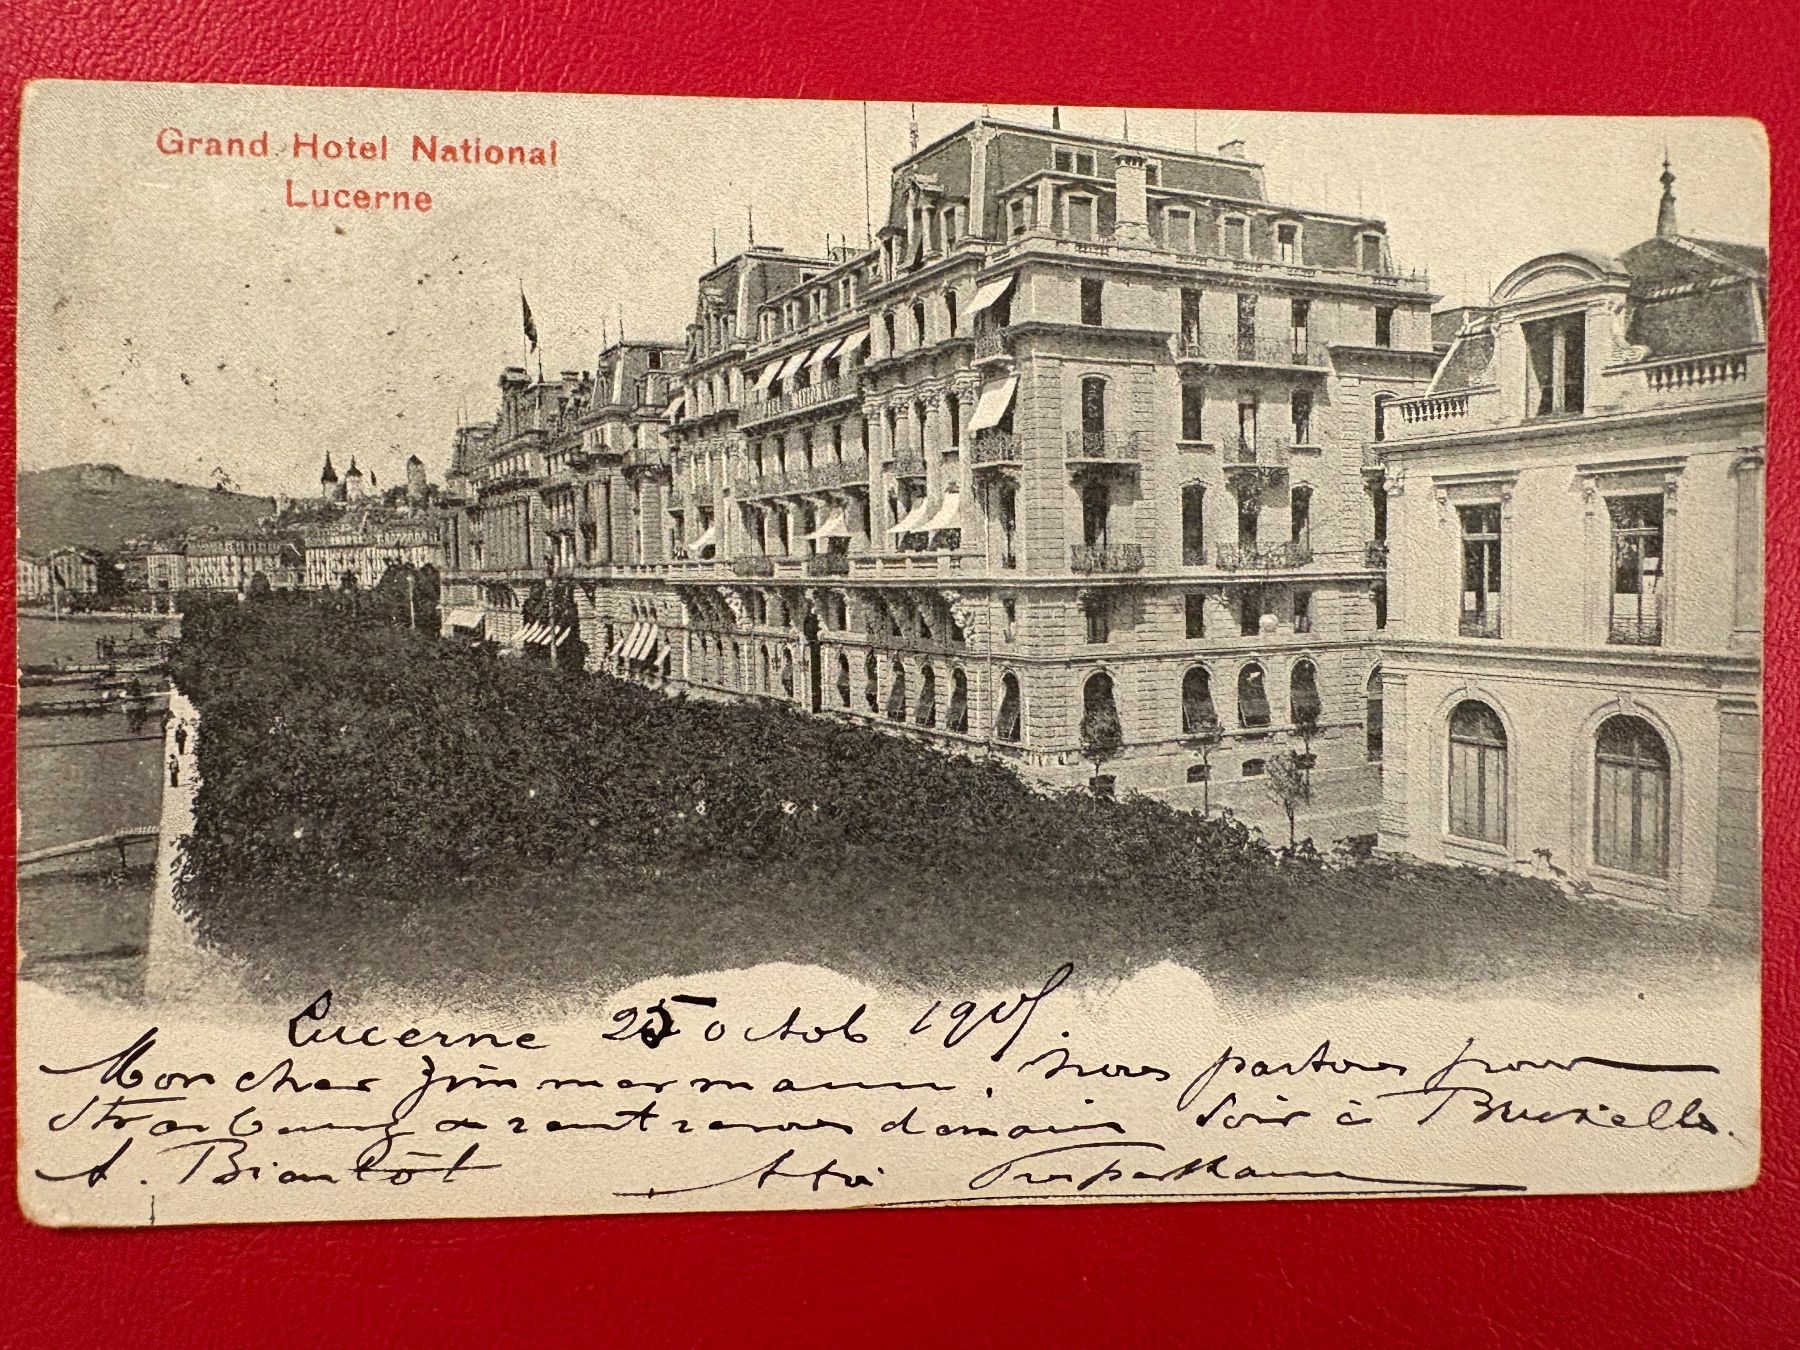 Grand Hotel National
Lucerne
Lucerne 25 octob 1905.
Mon cher Zimmermann, nous partons pour
Strasbourg et rentrerons demain soir à Bruxelles.
A. Biantôt